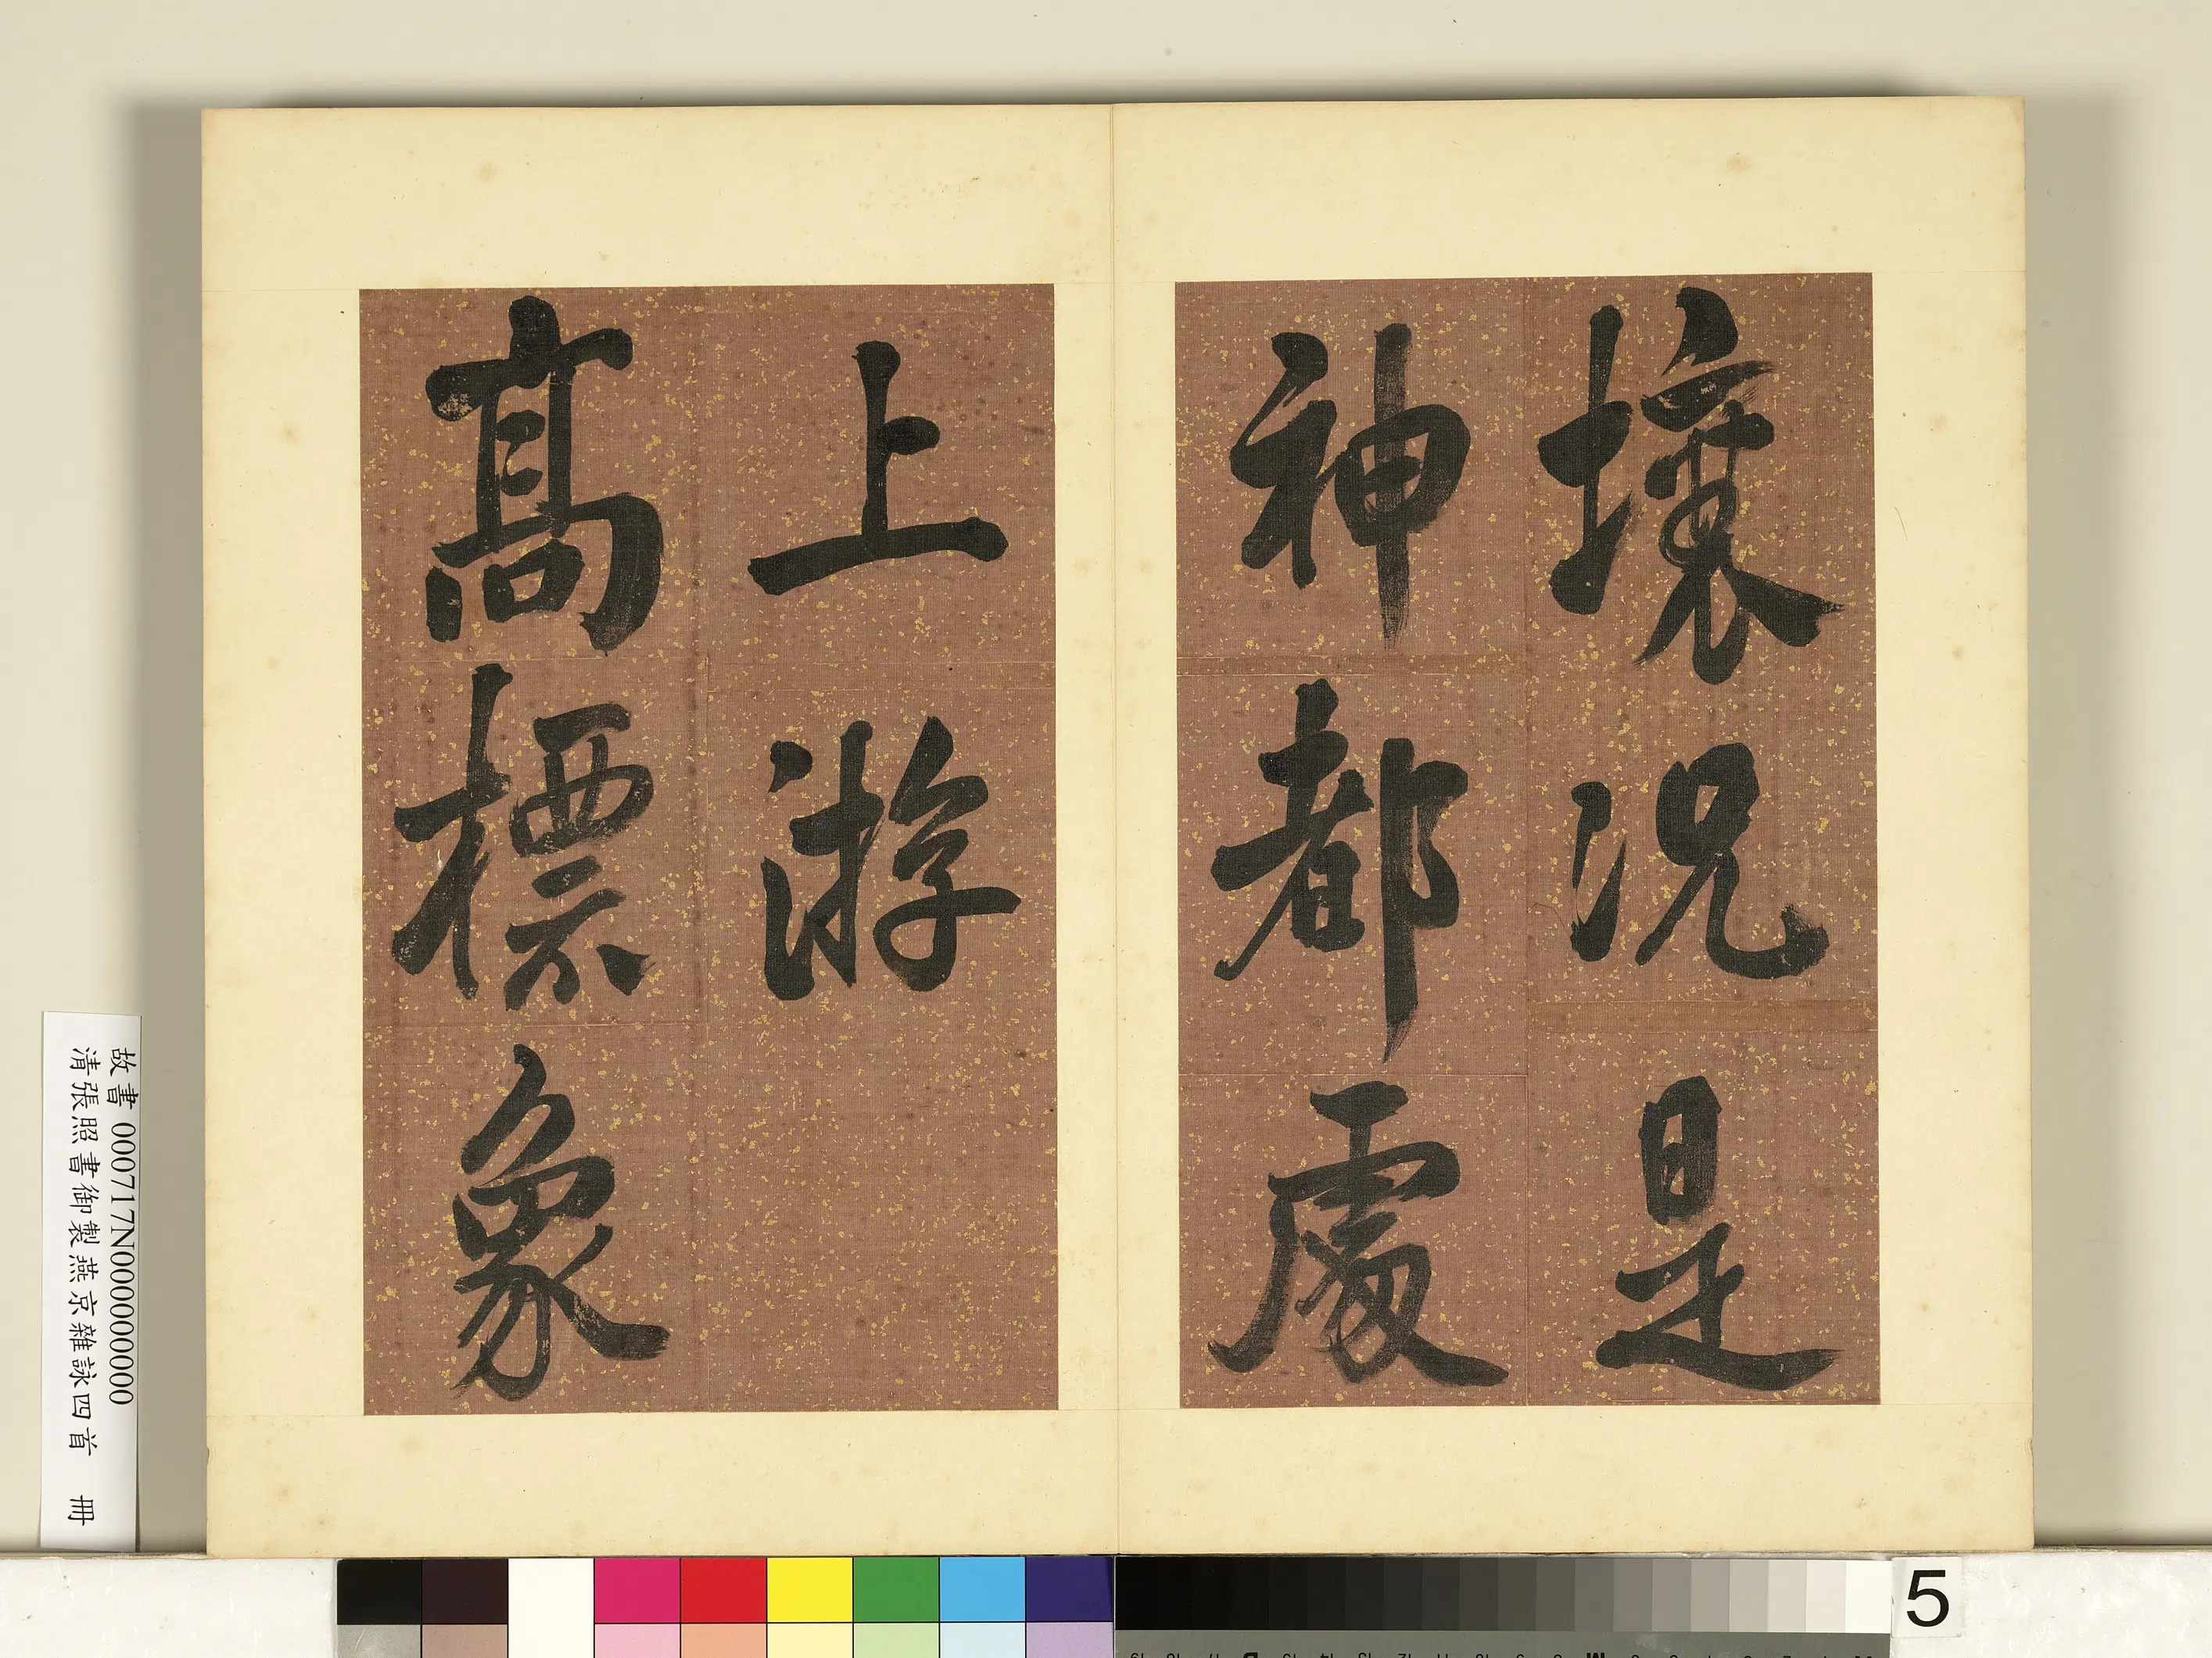 壤況是
神都處
上游
高標象
故書 000717N000000000
清張照書御製燕京雜詠四首 冊
5